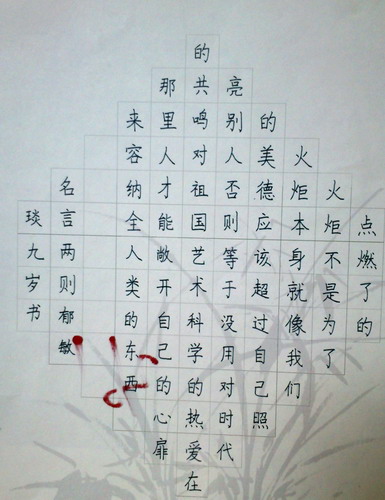 点燃了的
火炬不是为了
火炬本身就像我们
的美德应该超过自己照
亮别人否则等于没用对时代
的共鸣对祖国艺术科学的热爱在
那里人才能敞开自己的心扉
来容纳全人类的东西
名言两则郁敏
琰九岁书